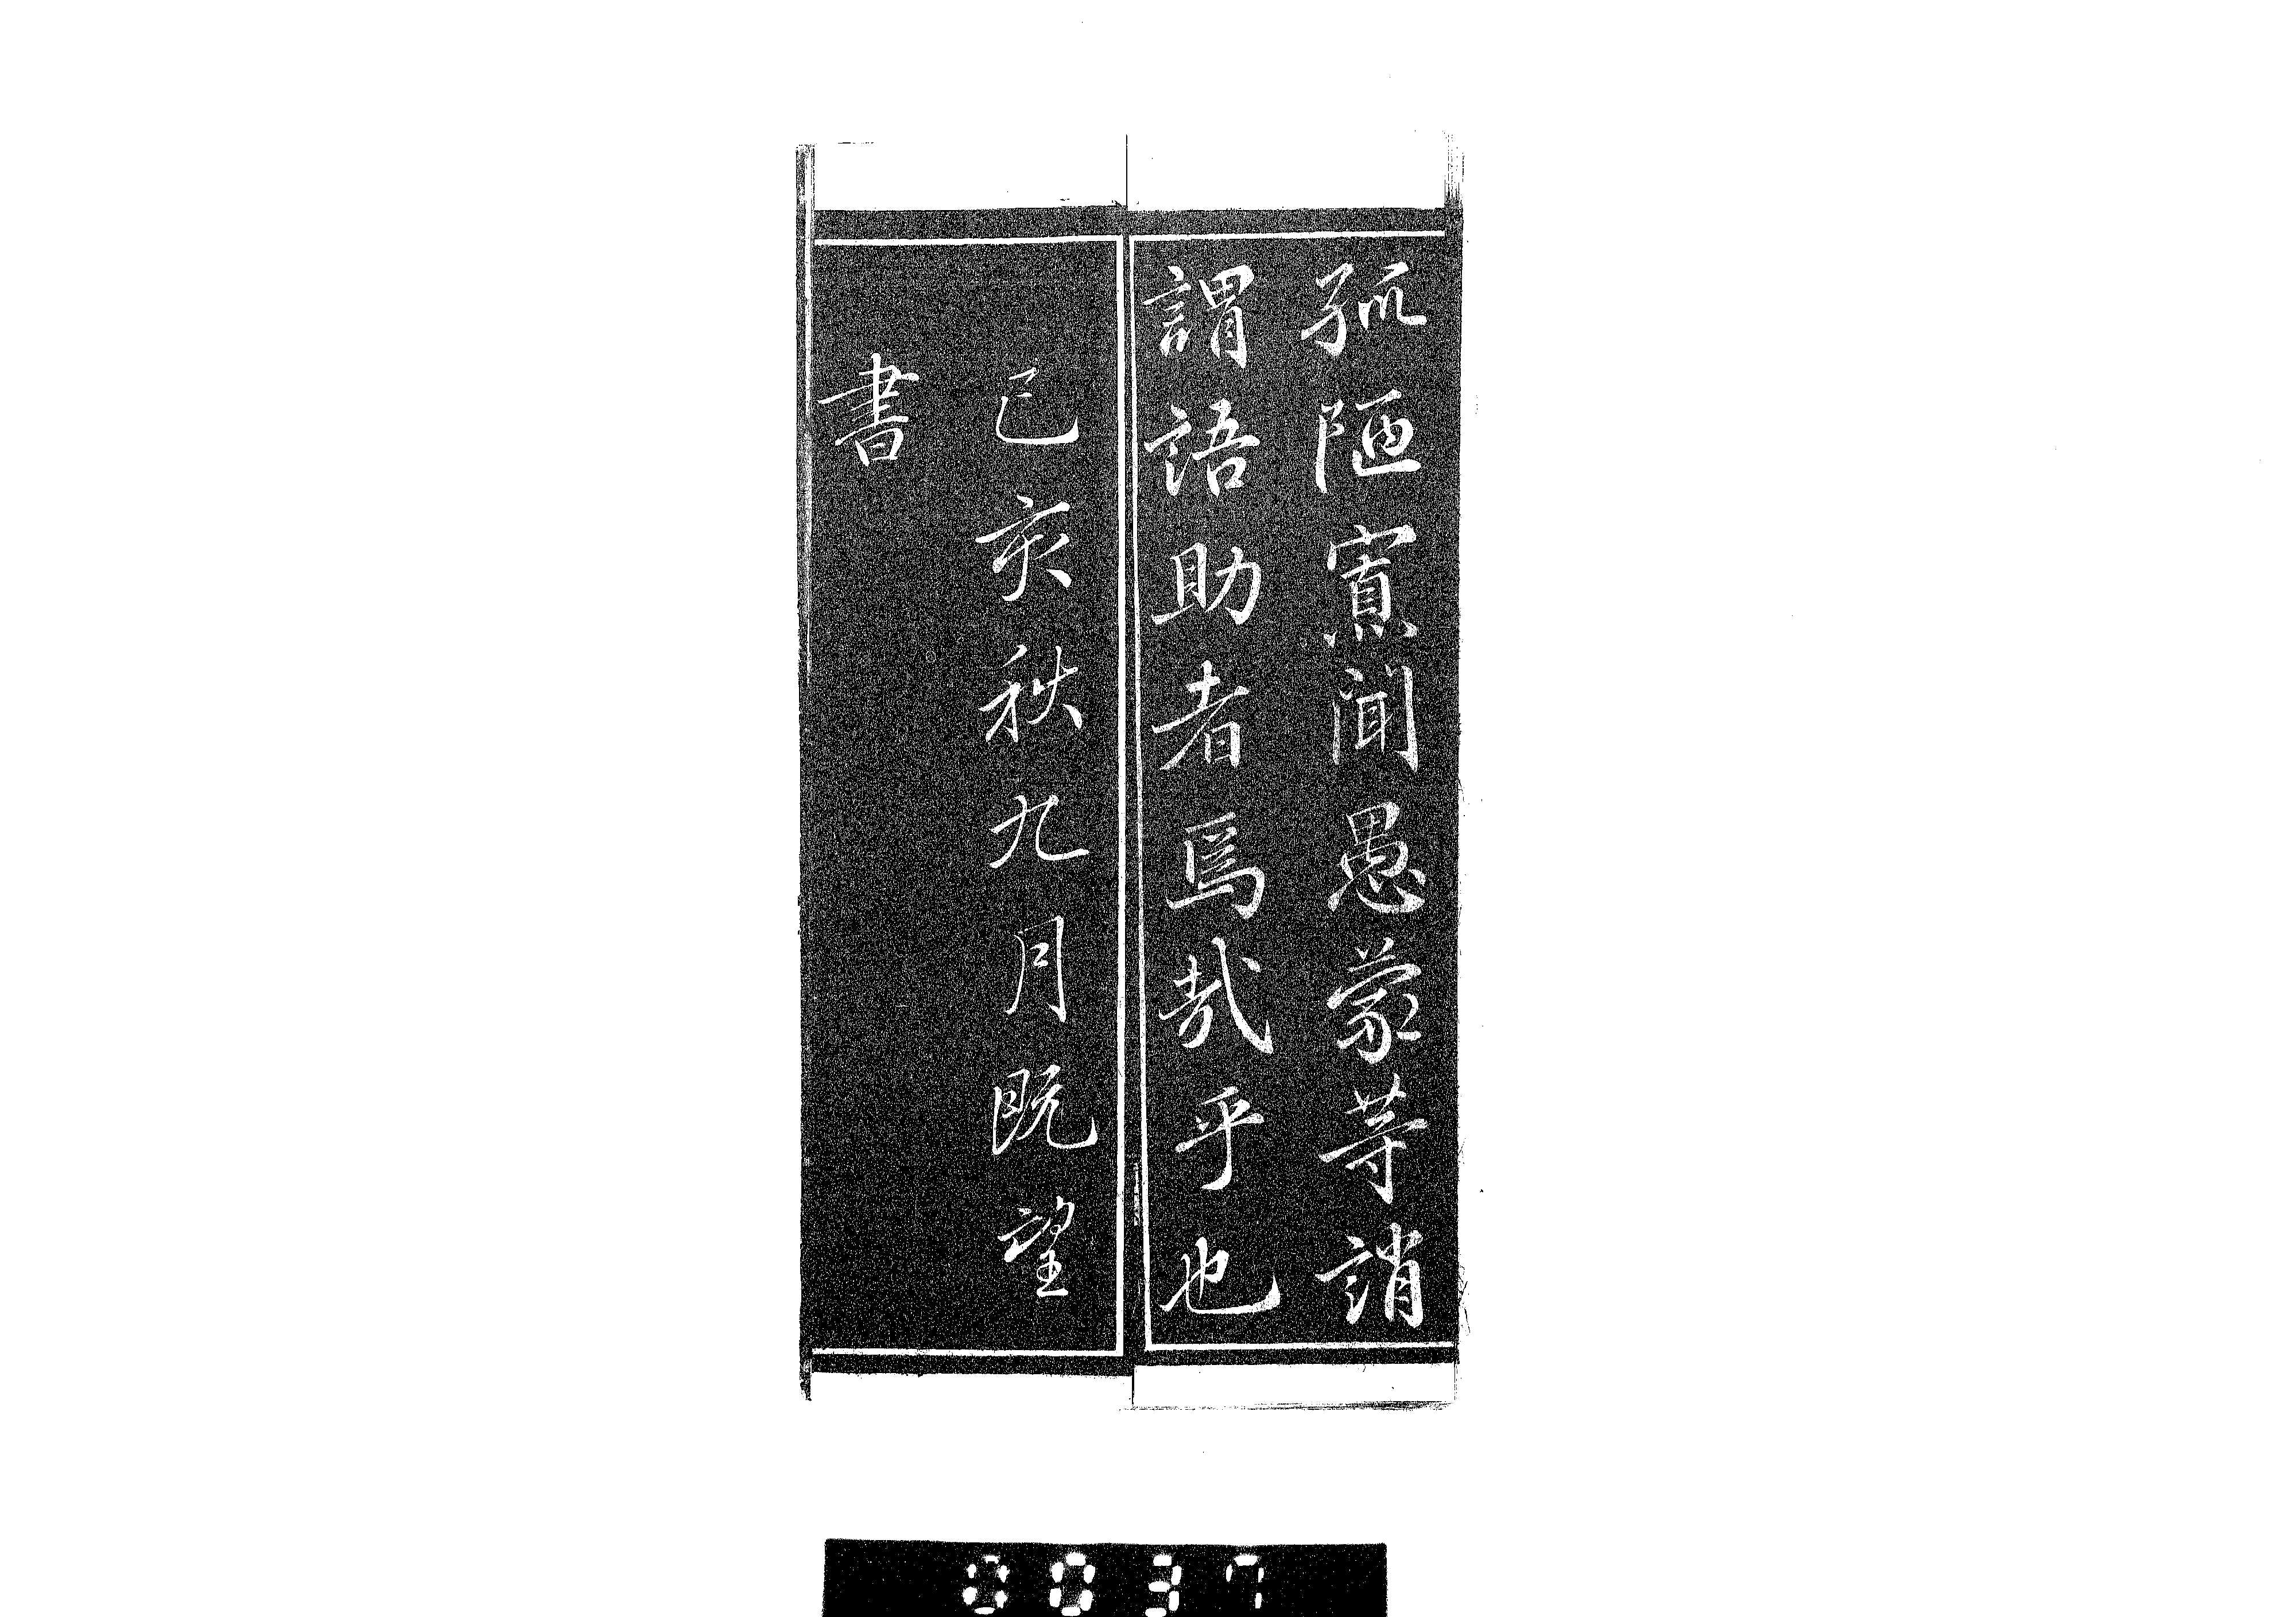 孤陋寡聞愚蒙等誚
謂語助者焉哉乎也
己亥秋九月既望
書
0037